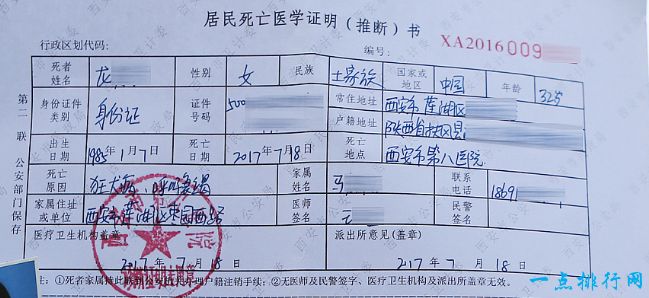 居民死亡医学证明（推断）书
行政区划代码： 编号： XA2016009
死者姓名 龙 性别 女 民族 土家族 国家或地区 中国 年龄 32岁
身份证件类别 身份证 证件号码 500 常住地址 西安市莲湖区
户籍地址 陕西省扶风县
出生日期 1985年1月7日 死亡日期 2017年7月18日 死亡地点 西安市第八医院
死亡原因 狂犬病、呼吸衰竭 家属姓名 马 联系电话 18691
家属住址或单位 西安市莲湖区 医师签名 民警签名
医疗卫生机构盖章 派出所意见（盖章）
年7月18日 217年7月18日
注：①死者家属持此联到公安机关办理户籍注销手续；②无医师及民警签字、医疗卫生机构及派出所盖章无效。
第二联 公安部门保存
一点排行网